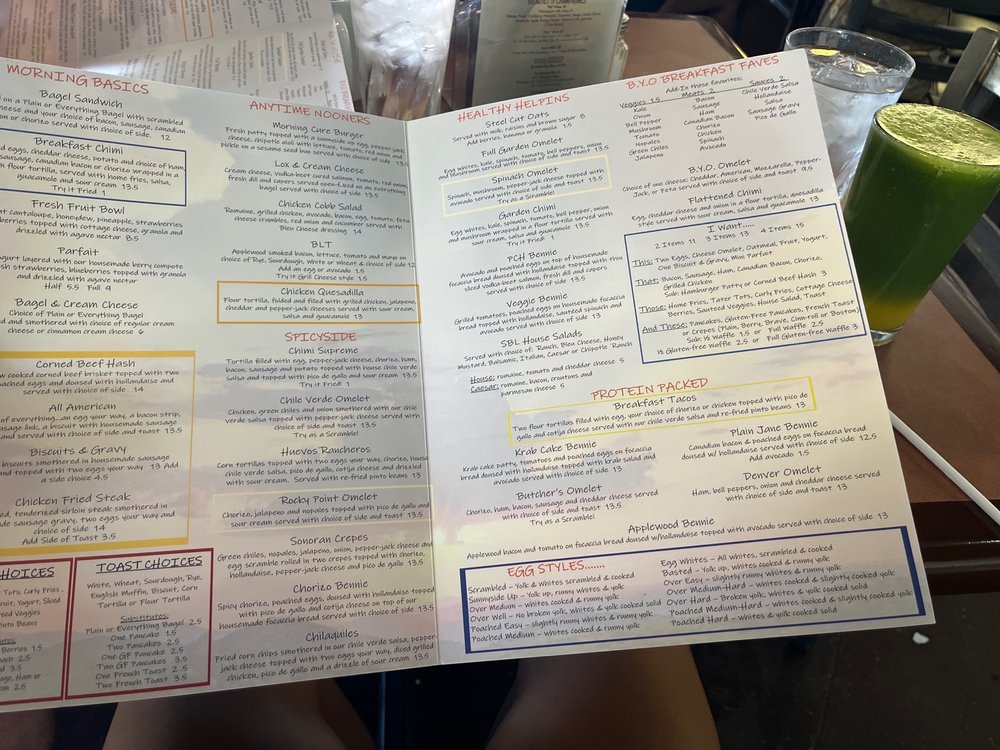 MORNING BASICS
Bagel Sandwich
on a Plain or Everything Bagel with scrambled
cheese and your choice of bacon, sausage, canadian
or chorizo served with choice of side. 12
Breakfast Chimi
eggs, cheese, potato and choice of ham
sausage, canadian bacon or chorizo wrapped in a
flour tortilla, served with home fries, salsa,
guacamole and sour cream 13.5
Try it Fried 1
Fresh Fruit Bowl
cantaloupe, honeydew, pineapple, strawberries
topped with cottage cheese, granola and
drizzled with agave nectar 8.5
Parfait
yogurt layered with our housemade berry compote
strawberries, blueberries topped with granola
and drizzled with agave nectar
Half 5.5 Full 9
Bagel & Cream Cheese
Choice of Plain or Everything Bagel
and smothered with choice of regular cream
cheese or cinnamon cream cheese 6
Corned Beef Hash
cooked corned beef brisket topped with two
poached eggs and doused with hollandaise and
served with choice of side 14
All American
of everything...an egg your way, a bacon strip,
sausage link, a biscuit with housemade sausage
and served with choice of side and toast 13.5
Biscuits & Gravy
biscuits smothered in homemade sausage
and topped with two eggs your way 13 Add
a side choice 4.5
Chicken Fried Steak
tenderized sirloin steak smothered in
sausage gravy, two eggs your way and
choice of side 14
Add Side of Toast 3.5
TOAST CHOICES
White, Wheat, Sourdough, Rye,
English Muffin, Biscuit, Corn
Tortilla or Flour Tortilla
Substitutes:
Plain or Everything Bagel 2.5
One Pancake 1.5
Two Pancakes 2.5
One GF Pancake 2.5
Two GF Pancakes 3.5
One French Toast 2.5
Two French Toast 3.5
ANYTIME NOONERS
Morning Cure Burger
Fresh patty topped with a sunnyside up egg, pepper-jack
cheese, chipotle aioli with lettuce, tomato, red onion and
pickle on a sesame seed bun served with choice of side 13.5
Lox & Cream Cheese
Cream cheese, vodka-beet cured salmon, tomato, red onion,
fresh dill and capers served open-faced on an everything
bagel served with choice of side 13.5
Chicken Cobb Salad
Romaine, grilled chicken, avocado, bacon, egg, tomato, feta
cheese crumbles, red onion and cucumber served with
Bleu Cheese dressing 14
BLT
Applewood smoked bacon, lettuce, tomato and mayo on
choice of Rye, Sourdough, White or Wheat & choice of side 12
Add an egg or avocado 1.5
Try it Grill Cheese style 1.5
Chicken Quesadilla
Flour tortilla, folded and filled with grilled chicken, jalapeno,
cheddar and pepper-jack cheeses served with sour cream,
salsa and guacamole 13
SPICYSIDE
Chimi Supreme
Tortilla filled with egg, pepper-jack cheese, chorizo, ham,
bacon, sausage and potato with house chile verde
salsa and topped with pico de gallo and sour cream 13.5
Try it Fried 1
Chile Verde Omelet
Chicken, green chiles and onion smothered with our chile
verde salsa topped with pepper-jack cheese served with
choice of side and toast 13.5
Try as a Scramble!
Huevos Rancheros
Corn tortillas topped with two eggs your way, chorizo, house
chile verde salsa, pico de gallo, cotija cheese and drizzled
with sour cream. Served with re-fried pinto beans 13
Rocky Point Omelet
Chorizo, jalapeno and nopales topped with pico de gallo and
sour cream served with choice of side and toast 13.5
Sonoran Crepes
Green chiles, nopales, jalapeno, onion, pepper-jack cheese and
egg scramble rolled in two crepes topped with chorizo,
hollandaise, pepper-jack cheese and pico de gallo 13.5
Chorizo Bennie
Spicy chorizo, poached eggs, doused with hollandaise topped
with pico de gallo and cotija cheese on top of our
housemade focaccia bread served with choice of side 13.5
Chilaquiles
Fried corn chips smothered in our chile verde salsa, pepper-
jack cheese topped with two eggs your way, diced grilled
chicken, pico de gallo and a drizzle of sour cream 13.5
HEALTHY HELPINS
Steel Cut Oats
Served with milk, raisins and brown sugar 8
Add berries, banana or granola 1.5
Full Garden Omelet
Egg whites, kale, spinach, tomato, bell peppers, onions
and mushroom served with choice of side and toast 13.5
Spinach Omelet
Spinach, mushroom, pepper-jack cheese topped with
avocado served with choice of side and toast 13.5
Try as a Scramble!
Garden Chimi
Egg whites, kale, spinach, tomato, bell pepper, onion
and mushroom wrapped in a flour tortilla served with
sour cream, salsa and guacamole 13.5
Try it Fried! 1
PCH Bennie
Avocado and poached eggs on top of housemade
focaccia bread doused with hollandaise topped with thin
sliced vodka-beet salmon, fresh dill and capers
served with choice of side 13.5
Veggie Bennie
Grilled tomatoes, poached eggs on housemade focaccia
bread topped with hollandaise, sauteed spinach and
avocado served with choice of side 13
SBL House Salads
Served with choice of: Ranch, Bleu Cheese, Honey
Mustard, Balsamic, Italian, Caesar or Chipotle Ranch
House: romaine, tomato and cheddar cheese 5
Caesar: romaine, bacon, croutons and
parmesan cheese 5
B.Y.O BREAKFAST FAVES
Add-In these favorites:
Veggies 1.5
Kale
Onion
Bell Pepper
Mushroom
Tomato
Nopales
Green Chiles
Jalapeno
Meats 2
Bacon
Sausage
Ham
Canadian Bacon
Chorizo
Chicken
Spinach
Avocado
Sauces 2
Chile Verde Salsa
Hollandaise
Salsa
Sausage Gravy
Pico de Gallo
B.Y.O. Omelet
Choice of one cheese: Cheddar, American, Mozzarella, Pepper-
Jack, or Feta served with choice of side and toast 9.5
Flattened Chimi
Egg, cheddar cheese and onion in a flour tortilla, quesadilla
style served with sour cream, salsa and guacamole 13
I Want.....
2 Items 11 3 Items 13 4 Items 15
This: Two Eggs, Cheese Omelet, Oatmeal, Fruit, Yogurt,
One Biscuit & Gravy, Mini Parfait
That: Bacon, Sausage, Ham, Canadian Bacon, Chorizo,
Grilled Chicken
Sub: Hamburger Patty or Corned Beef Hash 3
Those: Home Fries, Tater Tots, Curly Fries, Cottage Cheese
Berries, Sauteed Veggies, House Salad, Toast
And These: Pancakes, Gluten-Free Pancakes, French Toast
or Crepes (Plain, Berry, Brave, Cinn-roll or Boston)
Sub: ½ Waffle 1.5 or Full Waffle 2.5
½ Gluten-free Waffle 2.5 or Full Gluten-free Waffle 3
PROTEIN PACKED
Breakfast Tacos
Two flour tortillas filled with egg, your choice of chorizo or chicken topped with pico de
gallo and cotija cheese served with our chile verde salsa and re-fried pinto beans 13
Krab Cake Bennie
Krab cake patty, tomatoes and poached eggs on focaccia
bread doused with hollandaise topped with krab salad and
avocado served with choice of side 13
Butcher's Omelet
Chorizo, ham, bacon, sausage and cheddar cheese served
with choice of side and toast 13.5
Try as a Scramble!
Plain Jane Bennie
Canadian bacon & poached eggs on focaccia bread
doused w/ hollandaise served with choice of side 12.5
Add avocado 1.5
Denver Omelet
Ham, bell peppers, onion and cheddar cheese served
with choice of side and toast 13
Applewood Bennie
Applewood bacon and tomato on focaccia bread doused w/hollandaise topped with avocado served with choice of side 13
EGG STYLES.......
Scrambled – Yolk & Whites scrambled & cooked
Sunnyside Up – Yolk up, runny whites & yolk
Over Medium – whites cooked & runny yolk
Over Well – No broken yolk, whites & yolk cooked solid
Poached Easy – slightly runny whites & runny yolk
Poached Medium – whites cooked & runny yolk
Egg Whites – All whites, scrambled & cooked
Basted – Yolk up, whites cooked & runny yolk
Over Easy – slightly runny whites & runny yolk
Over Medium-Hard – whites cooked & slightly cooked yolk
Over Hard – Broken yolk, whites & yolk cooked solid
Poached Medium-Hard – whites cooked & slightly cooked yolk
Poached Hard – whites & yolk cooked solid